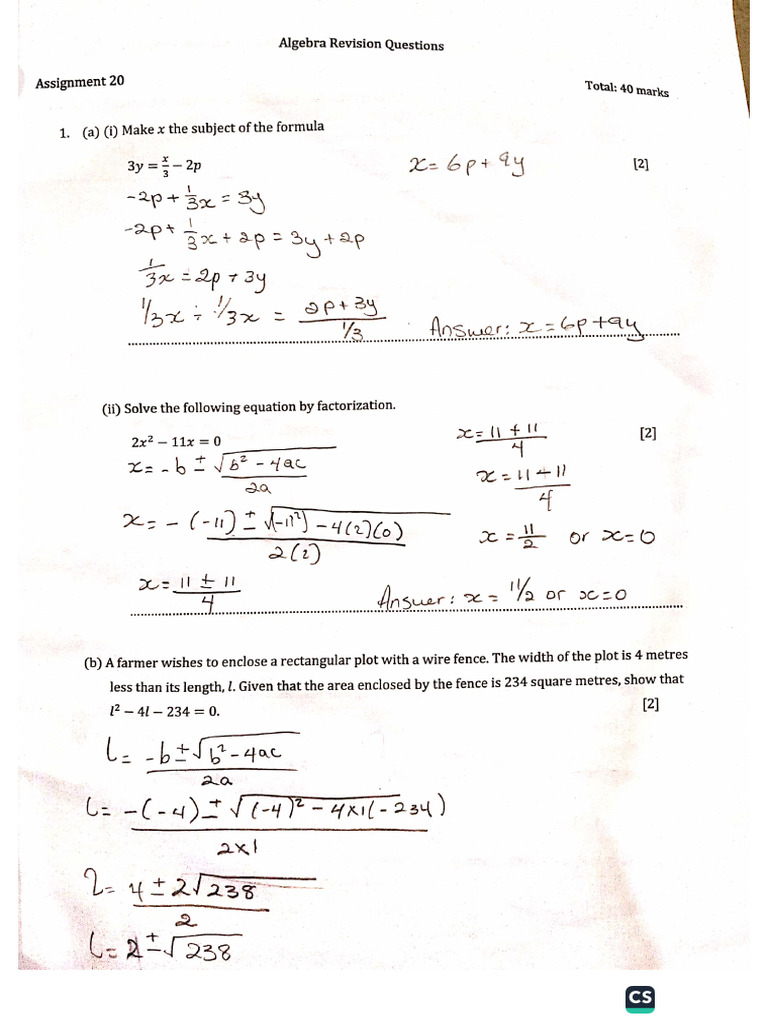 Algebra Revision Questions
Assignment 20
Total: 40 marks
1. (a) (i) Make x the subject of the formula
3y = x/3 − 2p
x = 6p + 9y
[2]
-2p + 1/3x = 3y
-2p + 1/3x + 2p = 3y + 2p
1/3x = 2p + 3y
1/3x ÷ 1/3x = 2p + 3y / 1/3
Answer: x = 6p + 9y
(ii) Solve the following equation by factorization.
2x² − 11x = 0
[2]
x = -b ± √b² - 4ac / 2a
x = -(-11) ± √(-11²) - 4(2)(0) / 2(2)
x = 11 ± 11 / 4
x = 11 + 11 / 4
x = 11 + 11 / 4
x = 11/2 or x = 0
Answer: x = 11/2 or x = 0
(b) A farmer wishes to enclose a rectangular plot with a wire fence. The width of the plot is 4 metres
less than its length, l. Given that the area enclosed by the fence is 234 square metres, show that
l² − 4l − 234 = 0.
[2]
l = -b ± √b² - 4ac / 2a
l = -(-4) ± √(-4)² - 4x1(-234) / 2x1
l = 4 ± 2√238 / 2
l = 2 ± √238
CS